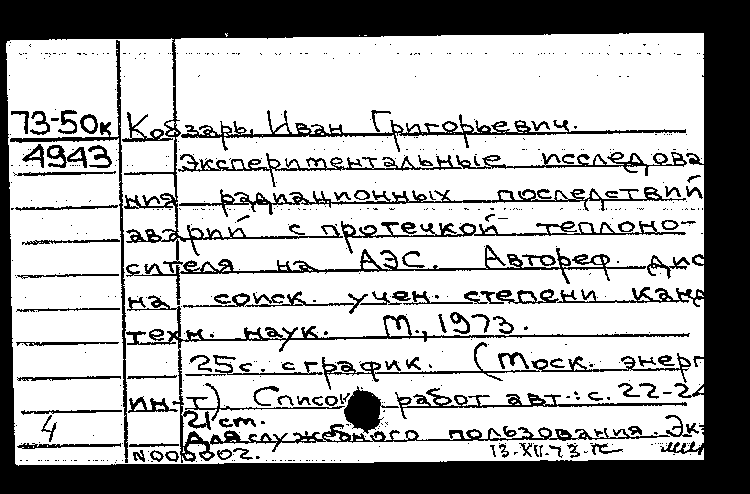 73-50к Кобзарь, Иван Григорьевич.
4943 Экспериментальные исследова
ния радиационных последствий
аварий с протечкой теплоно-
сителя на АЭС. Автореф. дис
на соиск. учен. степени канд
техн. наук. М., 1973.
25с. с график. (Моск. энерг
ин-т). Список работ авт.: с. 22-24
21 см.
4 Для служебного пользования. Экз
N000002. 13.XII.73.